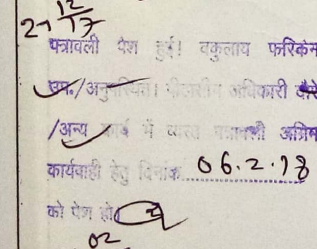 21 12/17
पत्रावली पेश हुई। वकुलाय फरिकेन
उप./अनुपस्थित। पीठासीन अधिकारी दौरे
/अन्य कार्य में व्यस्त पत्रावली अग्रिम
कार्यवाही हेतु दिनांक 06.2.18
को पेश हो।
02